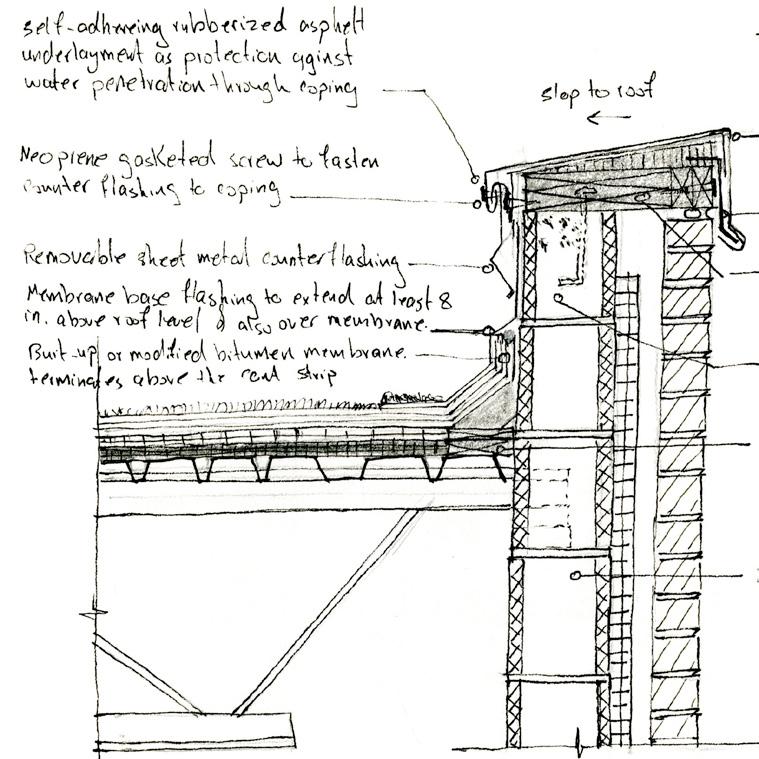 self-adhereing rubberized asphelt
underlayment as protection aginst
water penetration through coping
slop to roof
Neoprene gasketed screw to fasten
counter flashing to coping
Removable sheet metal counterflashing
Membrane base flashing to extend at least 8
in. above roof level & also over membrane.
Buit-up or modified bitumen membrane
terminates above the cant strip